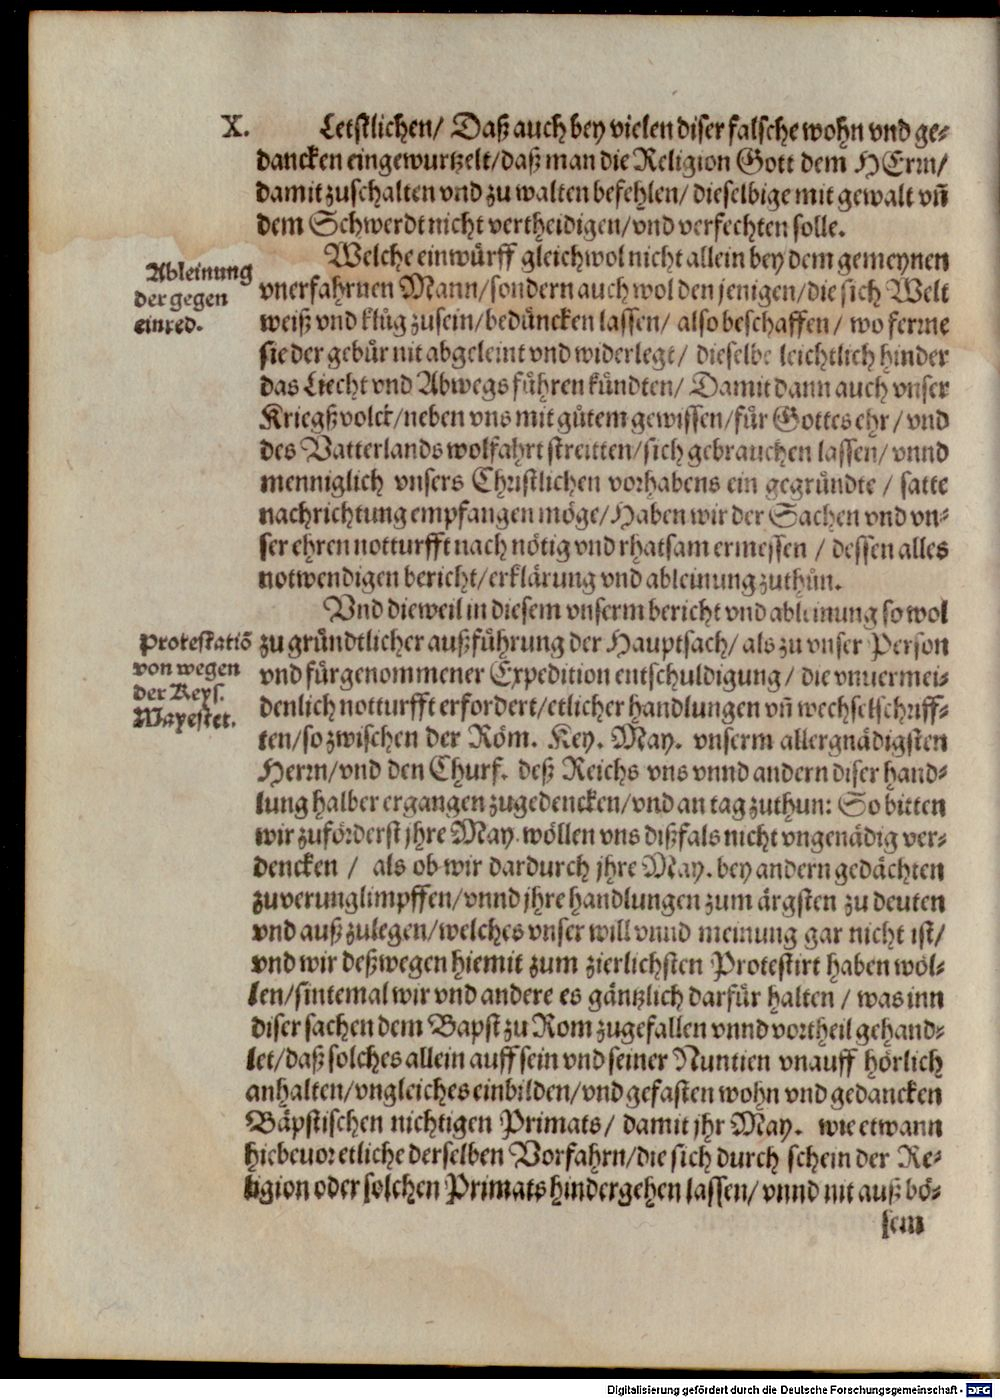 X. Letstlichen/ Daß auch bey vielen diser falsche wohn vnd ge-
dancken eingewurtzelt/ daß man die Religion Gott dem HErrn/
damit zuschalten vnd zu walten befehlen/ dieselbige mit gewalt vñ
dem Schwerdt nicht vertheidigen/ vnd verfechten solle.
Ableinung
der gegen
einred.
Welche einwürff gleichwol nicht allein bey dem gemeynen
vnerfahrnen Mann/ sondern auch wol den jenigen/ die sich Welt
weiß vnd klůg zusein/ bedüncken lassen/ also beschaffen/ wo ferrne
sie der gebür nit abgeleint vnd widerlegt/ dieselbe leichtlich hinder
das Liecht vnd Abwegs führen kündten/ Damit dann auch vnser
Kriegßvolck/ neben vns mit gůtem gewissen/ für Gottes ehr/ vnd
des Vatterlands wolfahrt streitten/ sich gebrauchen lassen/ vnnd
menniglich vnsers Christlichen vorhabens ein gegründte/ satte
nachrichtung empfangen möge/ Haben wir der Sachen vnd vn-
ser ehren notturfft nach nötig vnd rhatsam ermessen/ dessen alles
notwendigen bericht/ erklärung vnd ableinung zuthůn.
Vnd dieweil in diesem vnserm bericht vnd ableinung so wol
Protestatiõ
von wegen
der Keys.
Mayestet.
zu gründtlicher außführung der Hauptsach/ als zu vnser Person
vnd fürgenommener Expedition entschuldigung/ die vnuermei-
denlich notturfft erfordert/ etlicher handlungen vñ wechselschriff-
ten/ so zwischen der Röm. Key. May. vnserm allergnädigsten
Herrn/ vnd den Churf. deß Reichs vns vnnd andern diser hand-
lung halber ergangen zugedencken/ vnd an tag zuthun: So bitten
wir zuförderst jhre May. wöllen vns dißfals nicht vngenädig ver-
dencken/ als ob wir dardurch jhre May. bey andern gedächten
zuverunglimpffen/ vnnd jhre handlungen zum ärgsten zu deuten
vnd auß zulegen/ welches vnser will vnnd meinung gar nicht ist/
vnd wir deßwegen hiemit zum zierlichsten Protestirt haben wöl-
len/ sintemal wir vnd andere es gäntzlich darfür halten/ was inn
diser sachen dem Bapst zu Rom zugefallen vnnd vortheil gehand-
let/ daß solches allein auff sein vnd seiner Nuntien vnauff hörlich
anhalten/ vngleiches einbilden/ vnd gefasten wohn vnd gedancken
Bäpstischen nichtigen Primats/ damit jhr May. wie etwann
hiebeuor etliche derselben Vorfahrn/ die sich durch schein der Re-
ligion oder solchen Primats hindergehen lassen/ vnnd nit auß bö-
sem
Digitalisierung gefördert durch die Deutsche Forschungsgemeinschaft - DFG